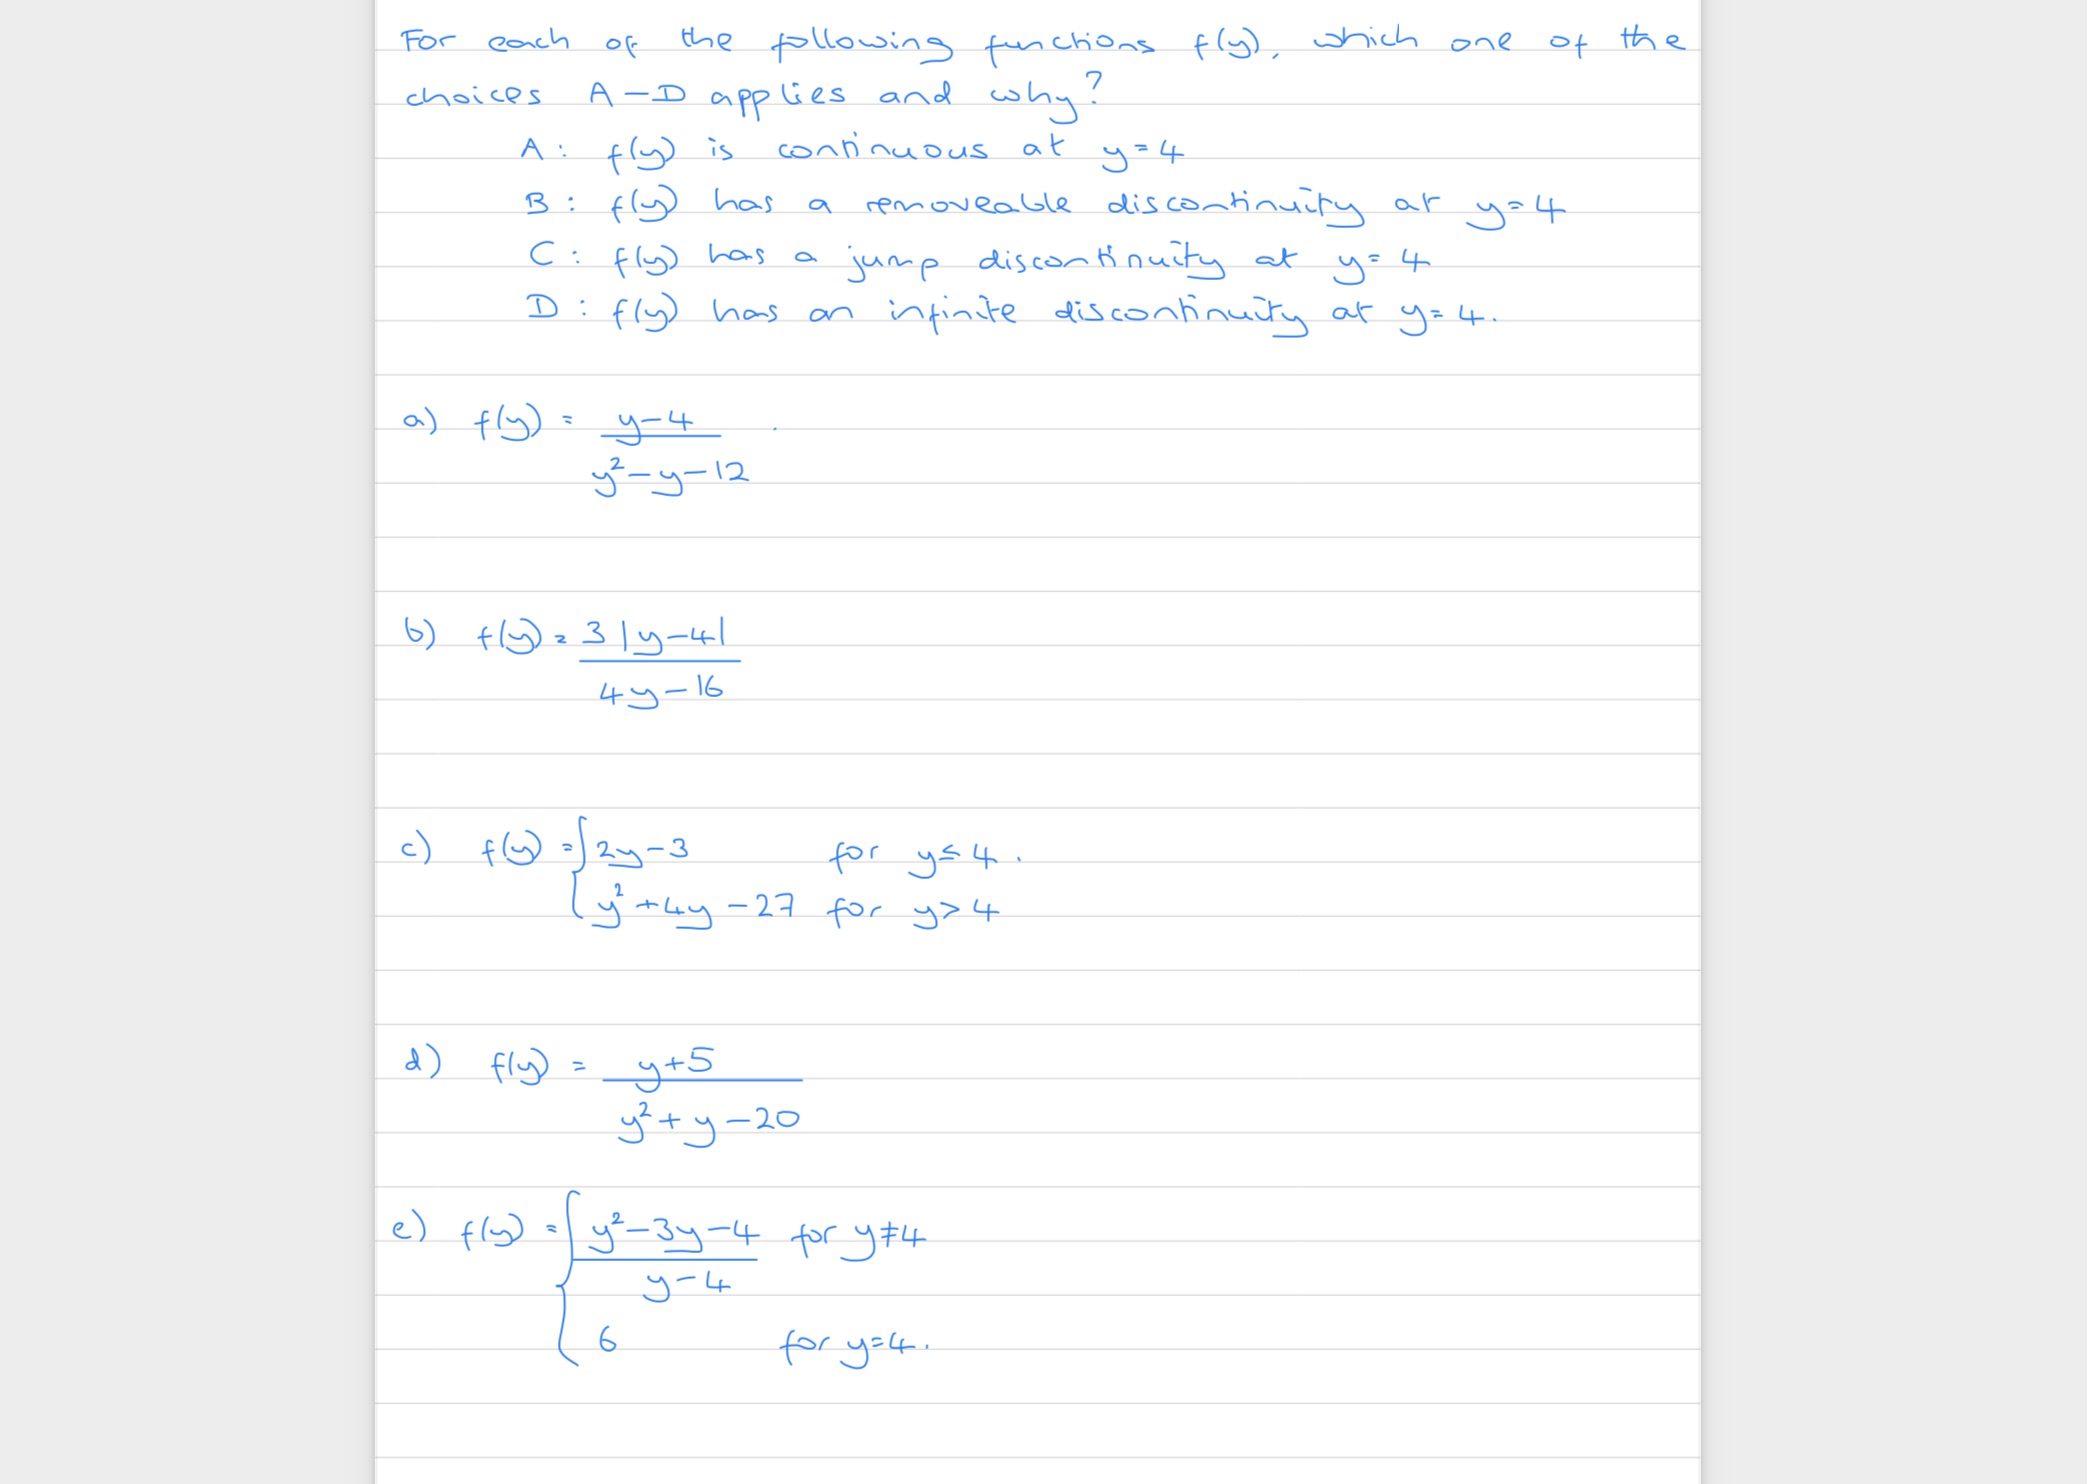 For each of the following functions f(y), which one of the
choices A-D applies and why?
A: f(y) is continuous at y=4
B: f(y) has a removeable discontinuity at y=4
C: f(y) has a jump discontinuity at y=4
D: f(y) has an infinite discontinuity at y=4.
a) f(y) = y-4
y²-y-12
b) f(y) = 3|y-4|
4y-16
c) f(y) = { 2y-3 for y≤4.
y²+4y-27 for y>4
d) f(y) = y+5
y²+y-20
e) f(y) = { y²-3y-4 for y≠4
y-4
6 for y=4.